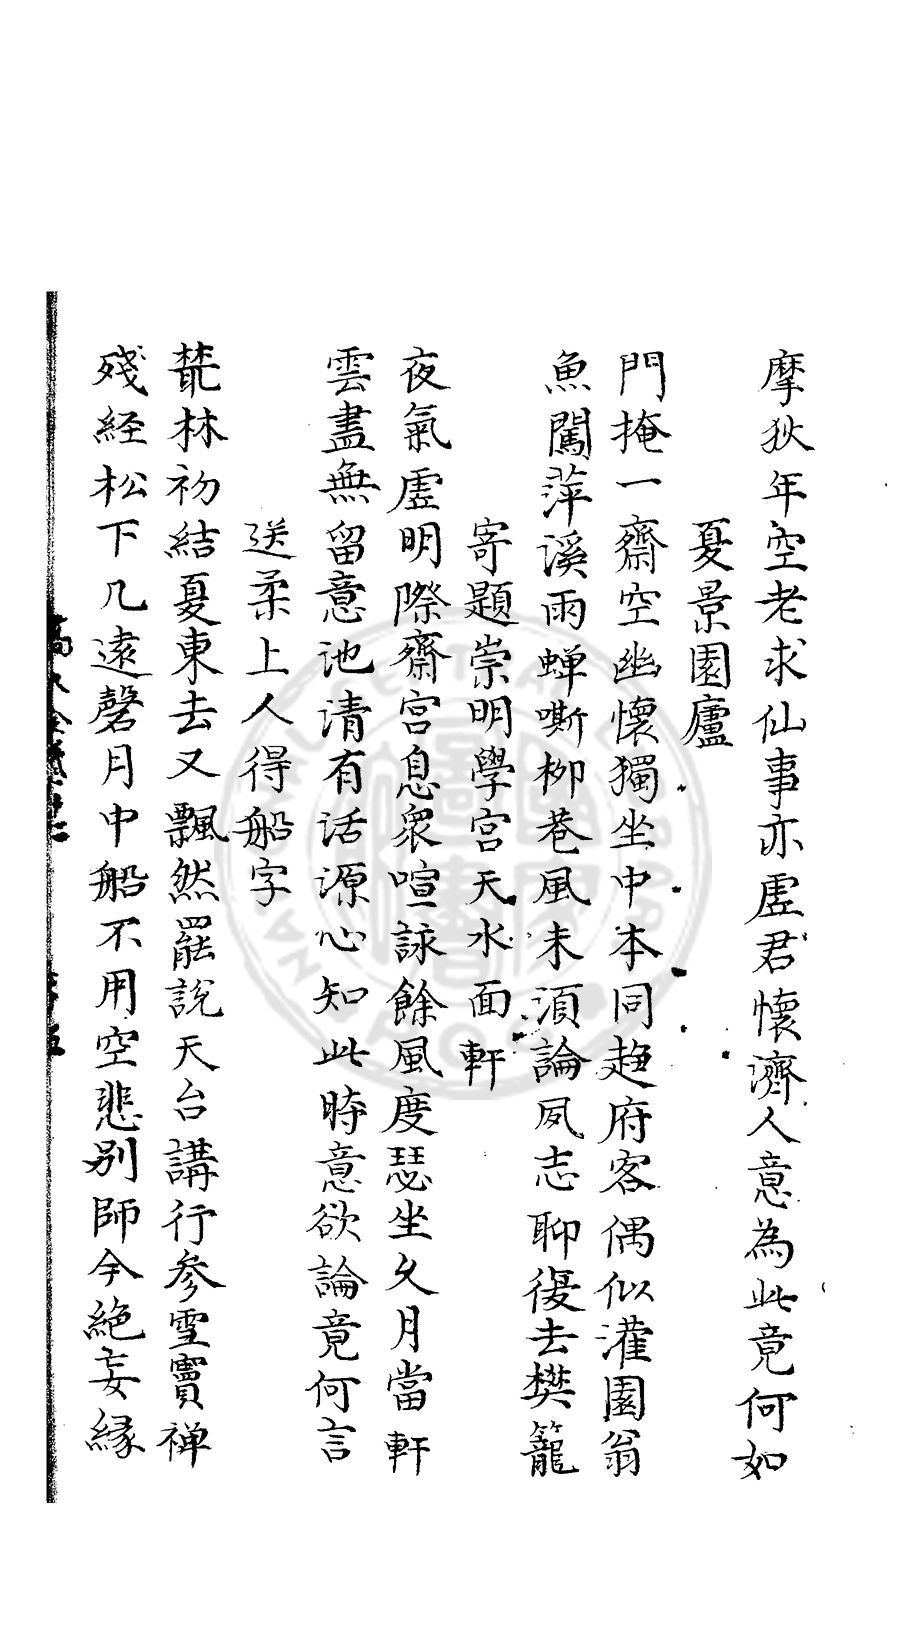 摩狄年空老求仙事亦虛君懷濟人意為此竟何如
夏景園廬
門掩一齋空幽懷獨坐中本同趍府客偶似灌園翁
魚闖萍溪雨蟬嘶柳巷風未須論夙志聊復去樊籠
寄題崇明學宮天水面軒
夜氣虛明際齋宮息衆喧詠餘風度瑟坐久月當軒
雲盡無留意池清有活源心知此時意欲論竟何言
送柔上人得船字
藂林初結夏東去又飄然罷說天台講行參雪竇禅
殘経松下几遠磬月中船不用空悲别師今絶妄緣